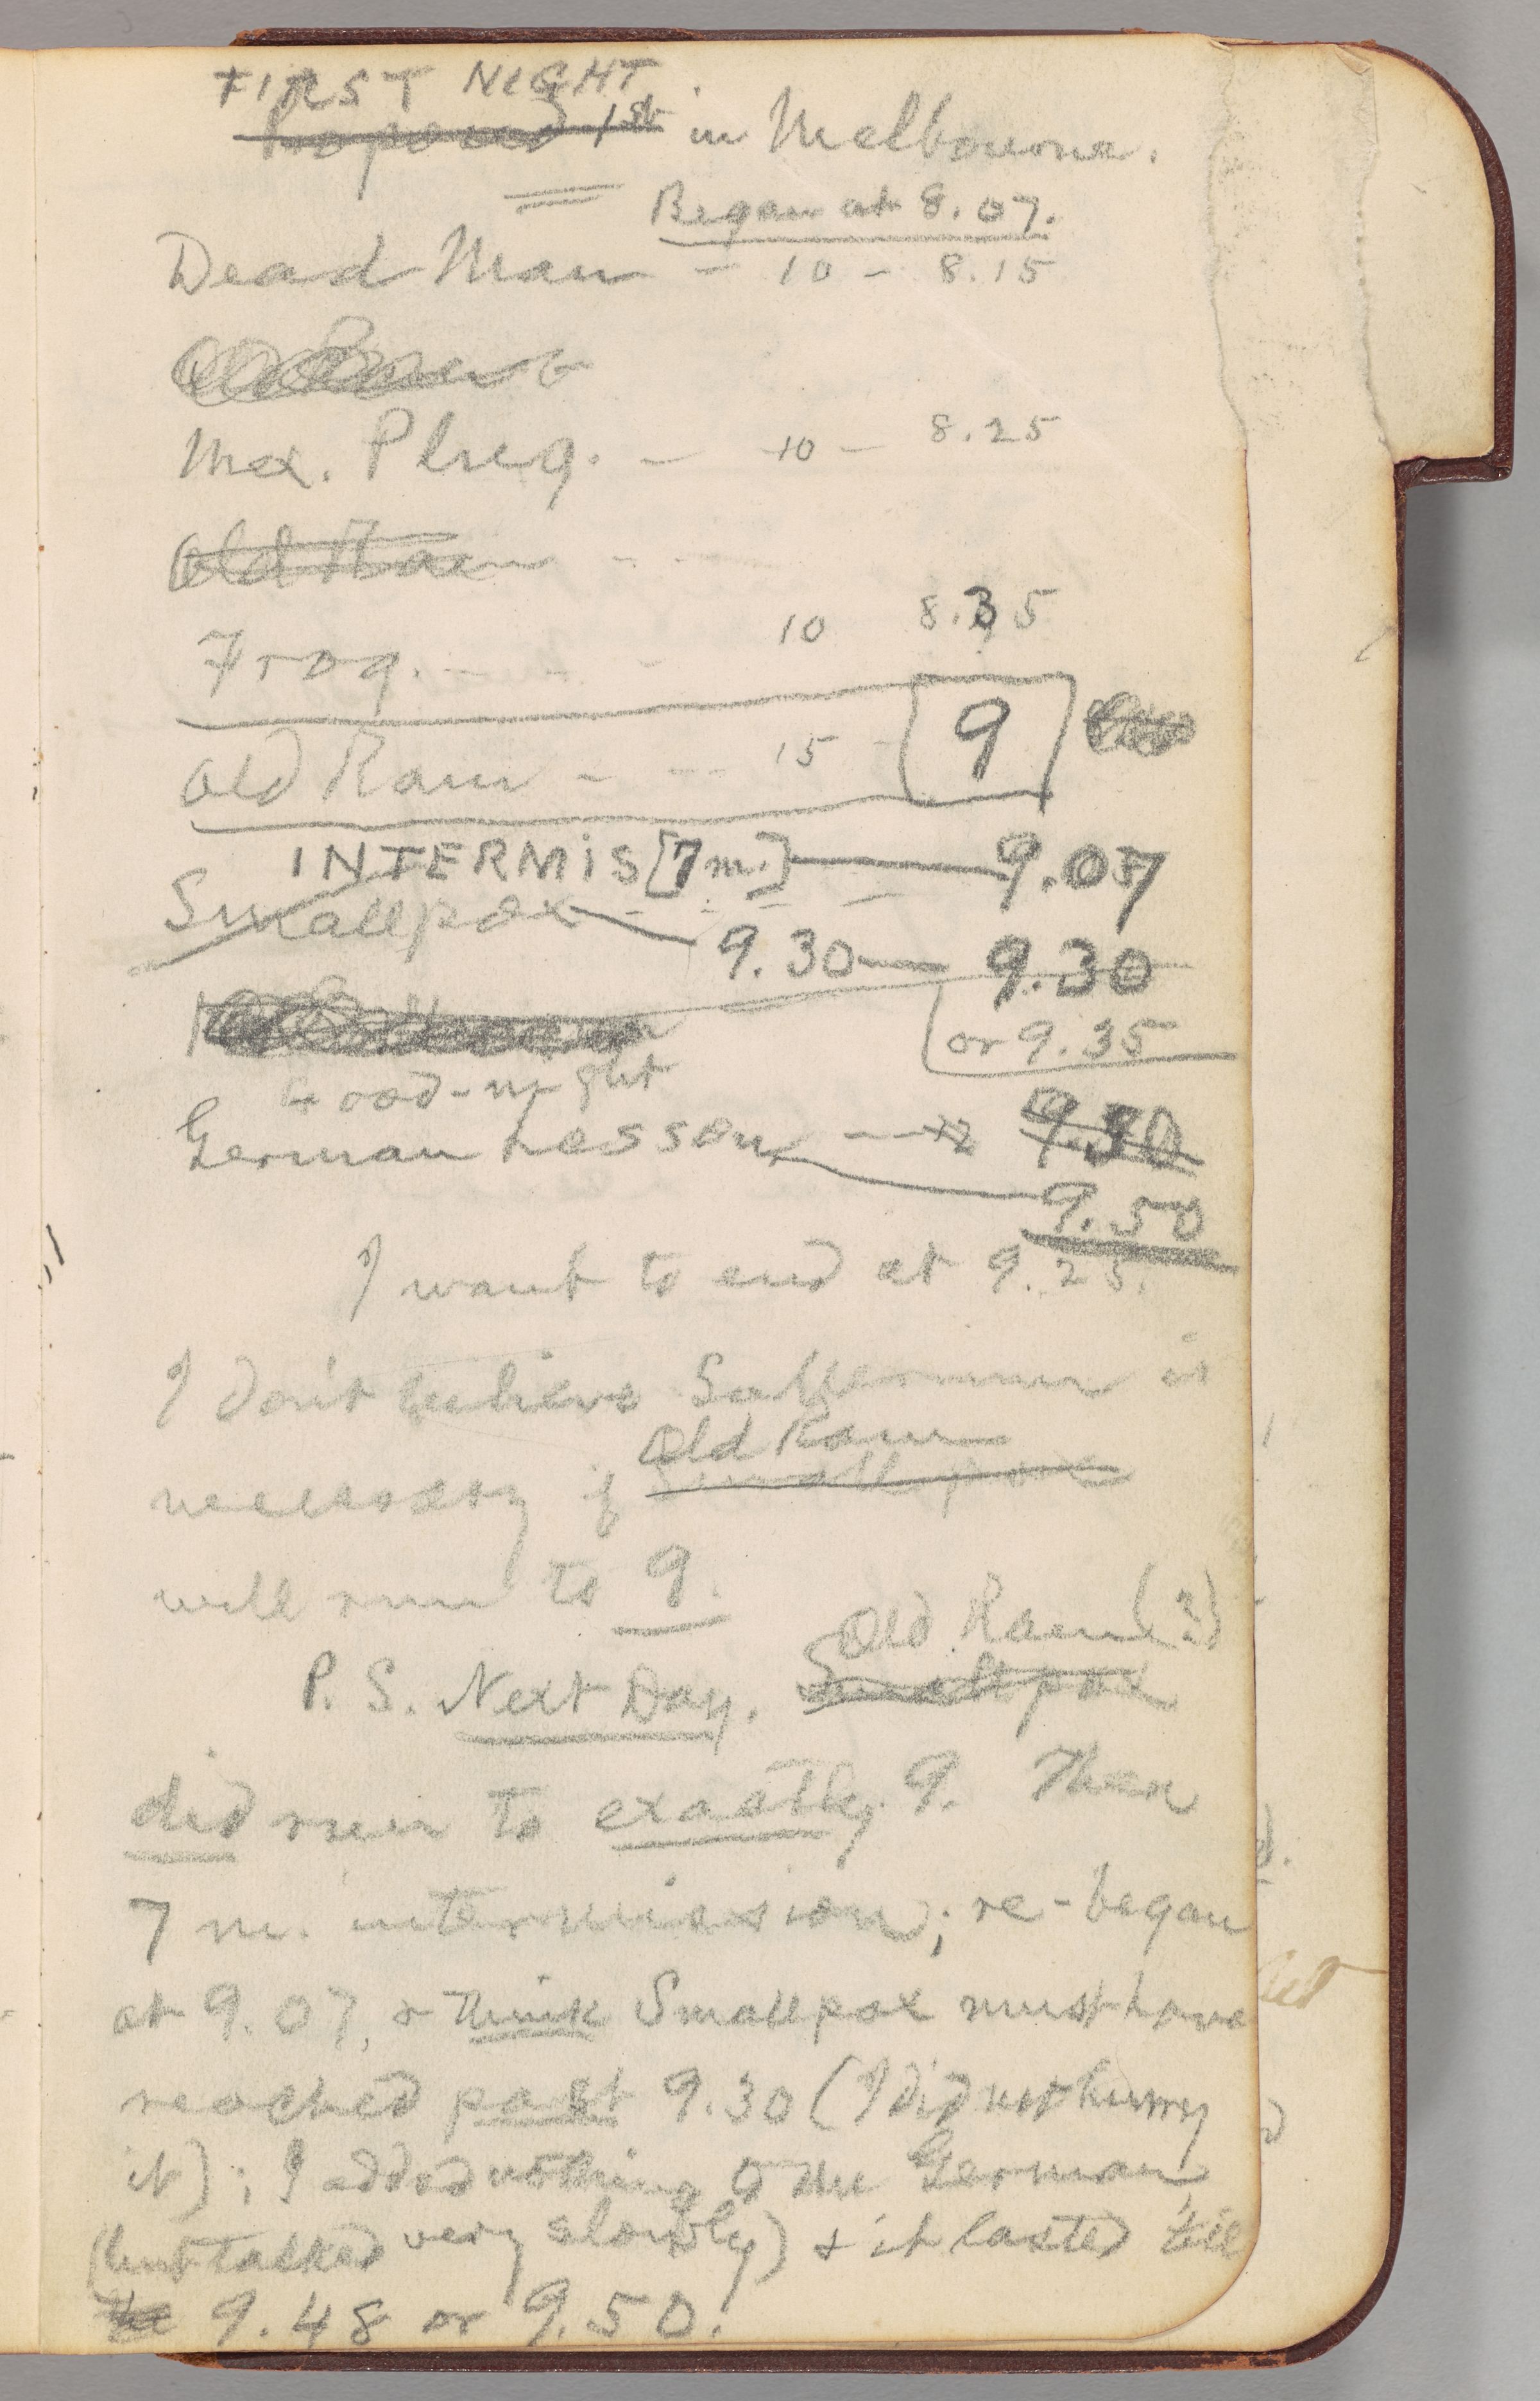 FIRST NIGHT
Proposed 1st in Melbourne.
Began at 8.07.
Dead Man - 10 - 8.15
Mex. Plug. - 10 - 8.25
Old Ram - -
Frog. - - - 10 8.35
Old Ram - - - 15 - [9]
INTERMIS [7 m.] — 9.07
Smallpox - - - -
9.30 — 9.30
or 9.35
Good-night
German Lesson — 12 9.30
9.50
I want to end at 9.25.
I don't believe is
Old Ram
necessary if Smallpox
will run to 9.
Old Ram (?)
P.S. Next Day. Smallpox
did run to exactly 9. Then
7 m. intermission; re-began
at 9.07, & think Smallpox must have
reached past 9.30 (I did not hurry
it); I added nothing to the German
(but talked very slowly) & it lasted till
9.48 or 9.50.